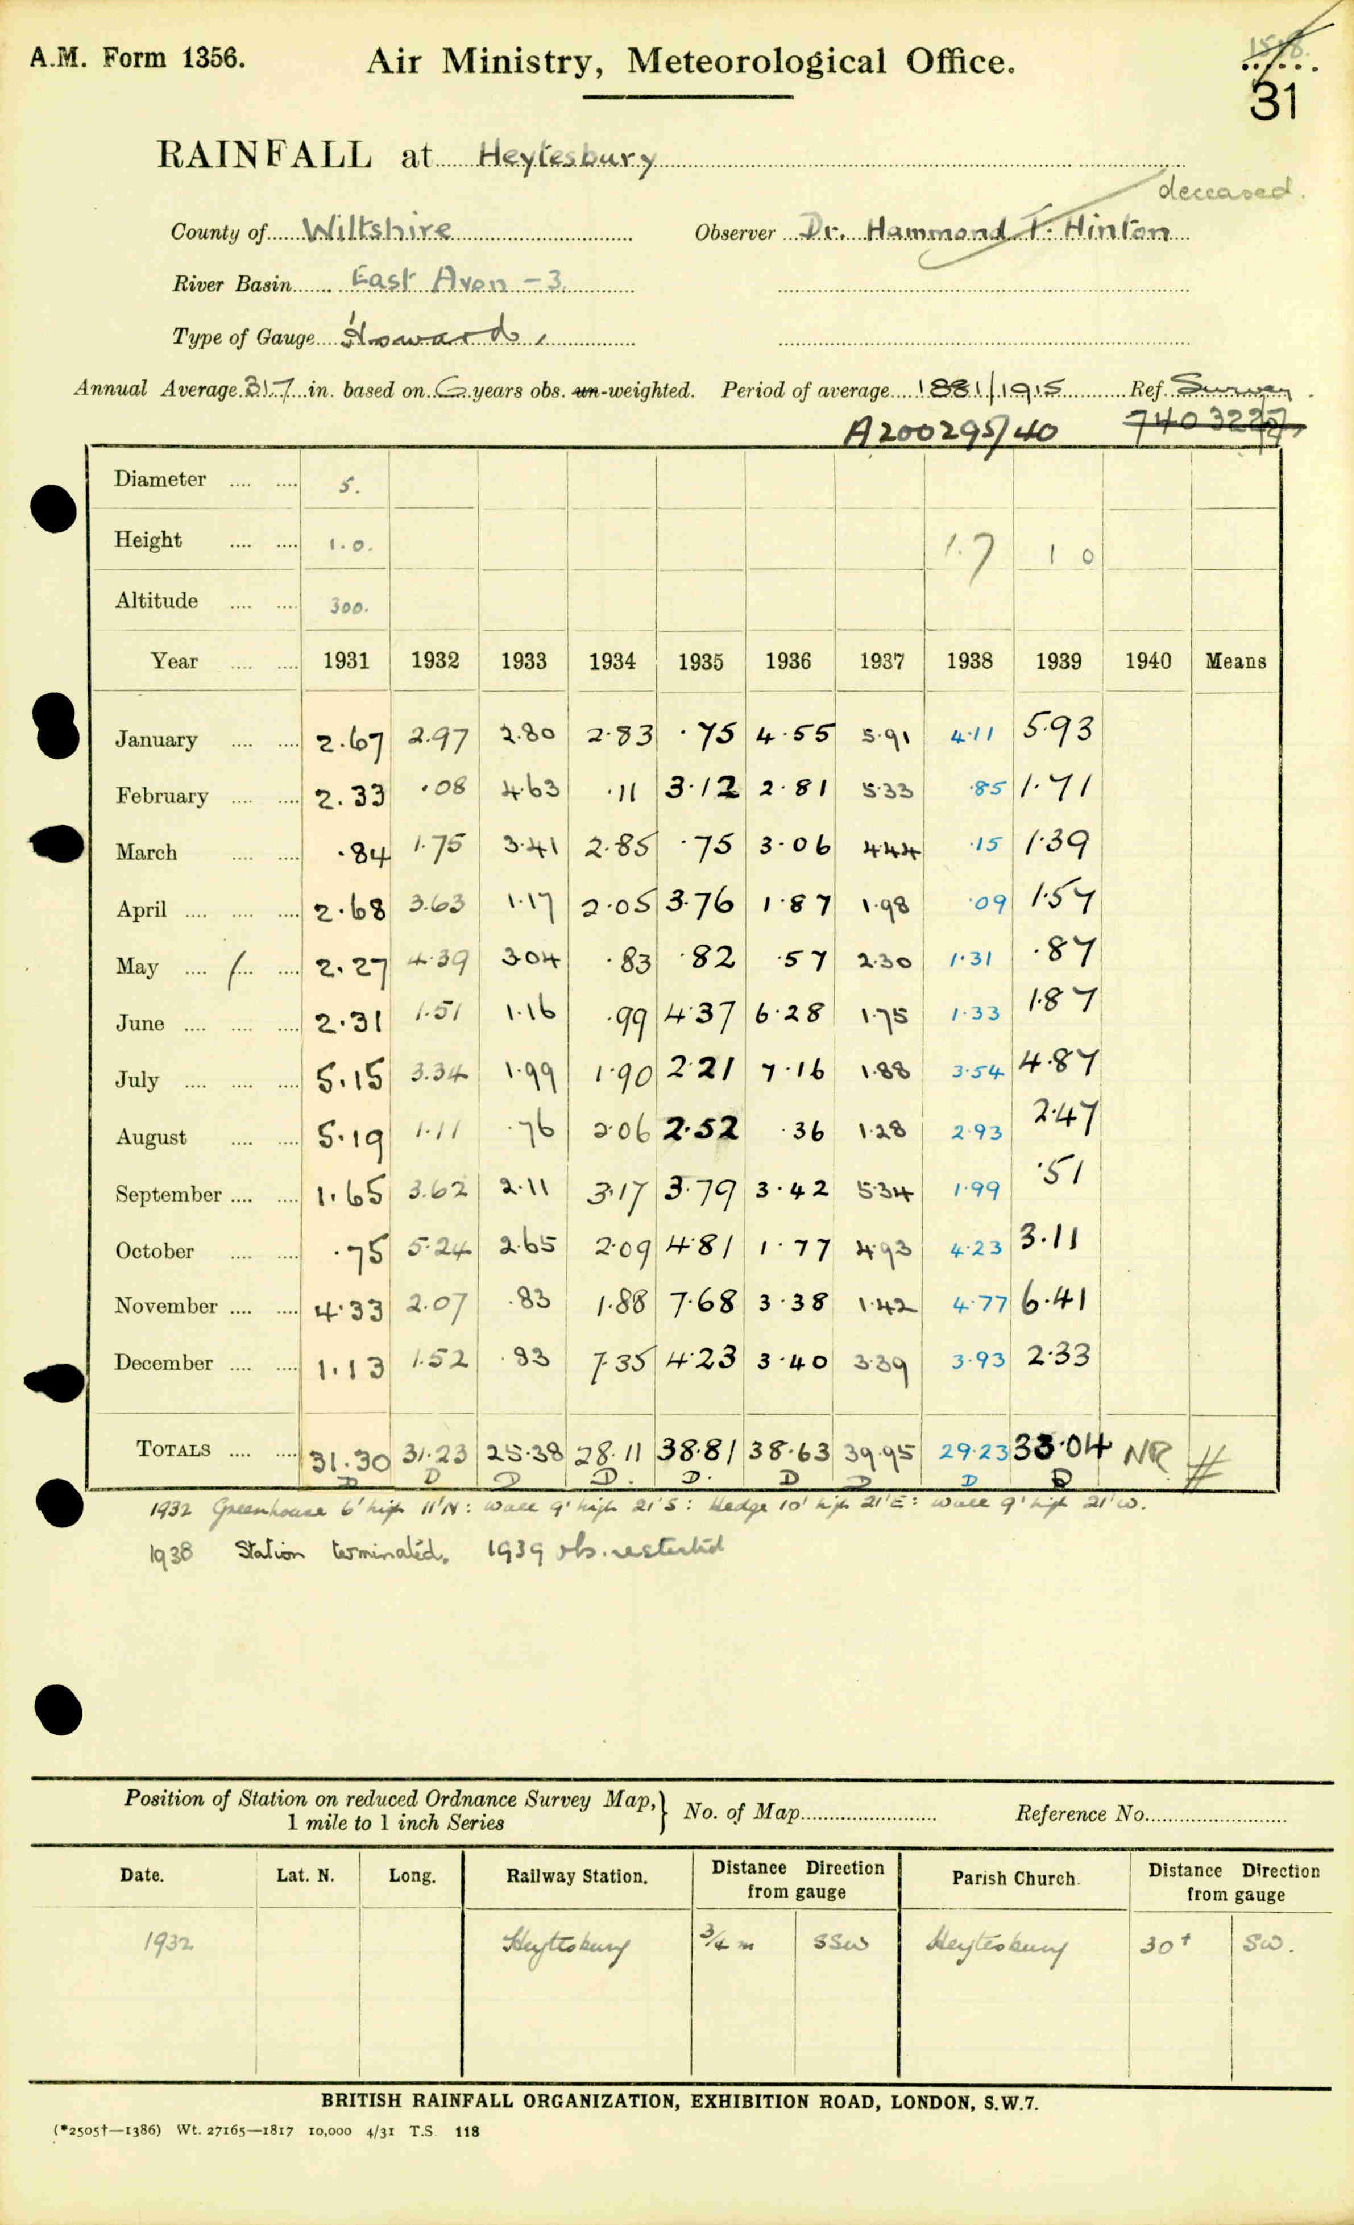 A.M. Form 1356. Air Ministry, Meteorological Office.
31
RAINFALL at Heytesbury
deceased.
County of Wiltshire Observer Dr. Hammond T. Hinton
River Basin East Avon - 3.
Type of Gauge Howard
Annual Average 31.7 in. based on 6 years obs. un-weighted. Period of average 1881/1915 Ref. Survey
A200295/40
Diameter 5.
Height 1.0. 1.7 1 0
Altitude 300.
Year 1931 1932 1933 1934 1935 1936 1937 1938 1939 1940 Means
January 2.67 2.97 2.80 2.83 .75 4.55 5.91 4.11 5.93
February 2.33 .08 4.63 .11 3.12 2.81 5.33 .85 1.71
March .84 1.75 3.41 2.85 .75 3.06 4.44 .15 1.39
April 2.68 3.63 1.17 2.05 3.76 1.87 1.98 .09 1.57
May 2.27 4.39 3.04 .83 .82 .57 2.30 1.31 .87
June 2.31 1.51 1.16 .99 4.37 6.28 1.75 1.33 1.87
July 5.15 3.34 1.99 1.90 2.21 7.16 1.88 3.54 4.87
August 5.19 1.11 .76 2.06 2.52 .36 1.28 2.93 2.47
September 1.65 3.62 2.11 3.17 3.79 3.42 5.34 1.99 .51
October .75 5.24 2.65 2.09 4.81 1.77 4.93 4.23 3.11
November 4.33 2.07 .83 1.88 7.68 3.38 1.42 4.77 6.41
December 1.13 1.52 .83 7.35 4.23 3.40 3.39 3.93 2.33
TOTALS 31.30 31.23 25.38 28.11 38.81 38.63 39.95 29.23 33.04 NR #
D D D D. D. D D D D
1932 Greenhouse 6' high 11' N : wall 9' high 21' S : Hedge 10' high 21' E : wall 9' high 21' W.
1938 Station terminated. 1939 obs. restarted
Position of Station on reduced Ordnance Survey Map, } No. of Map Reference No.
1 mile to 1 inch Series
Date. Lat. N. Long. Railway Station. Distance Direction from gauge Parish Church. Distance Direction from gauge
1932 Heytesbury 3/4 m SSW Heytesbury 30+ SW.
BRITISH RAINFALL ORGANIZATION, EXHIBITION ROAD, LONDON, S.W.7.
(*2505†—1386) Wt. 27165—1817 10,000 4/31 T.S. 118